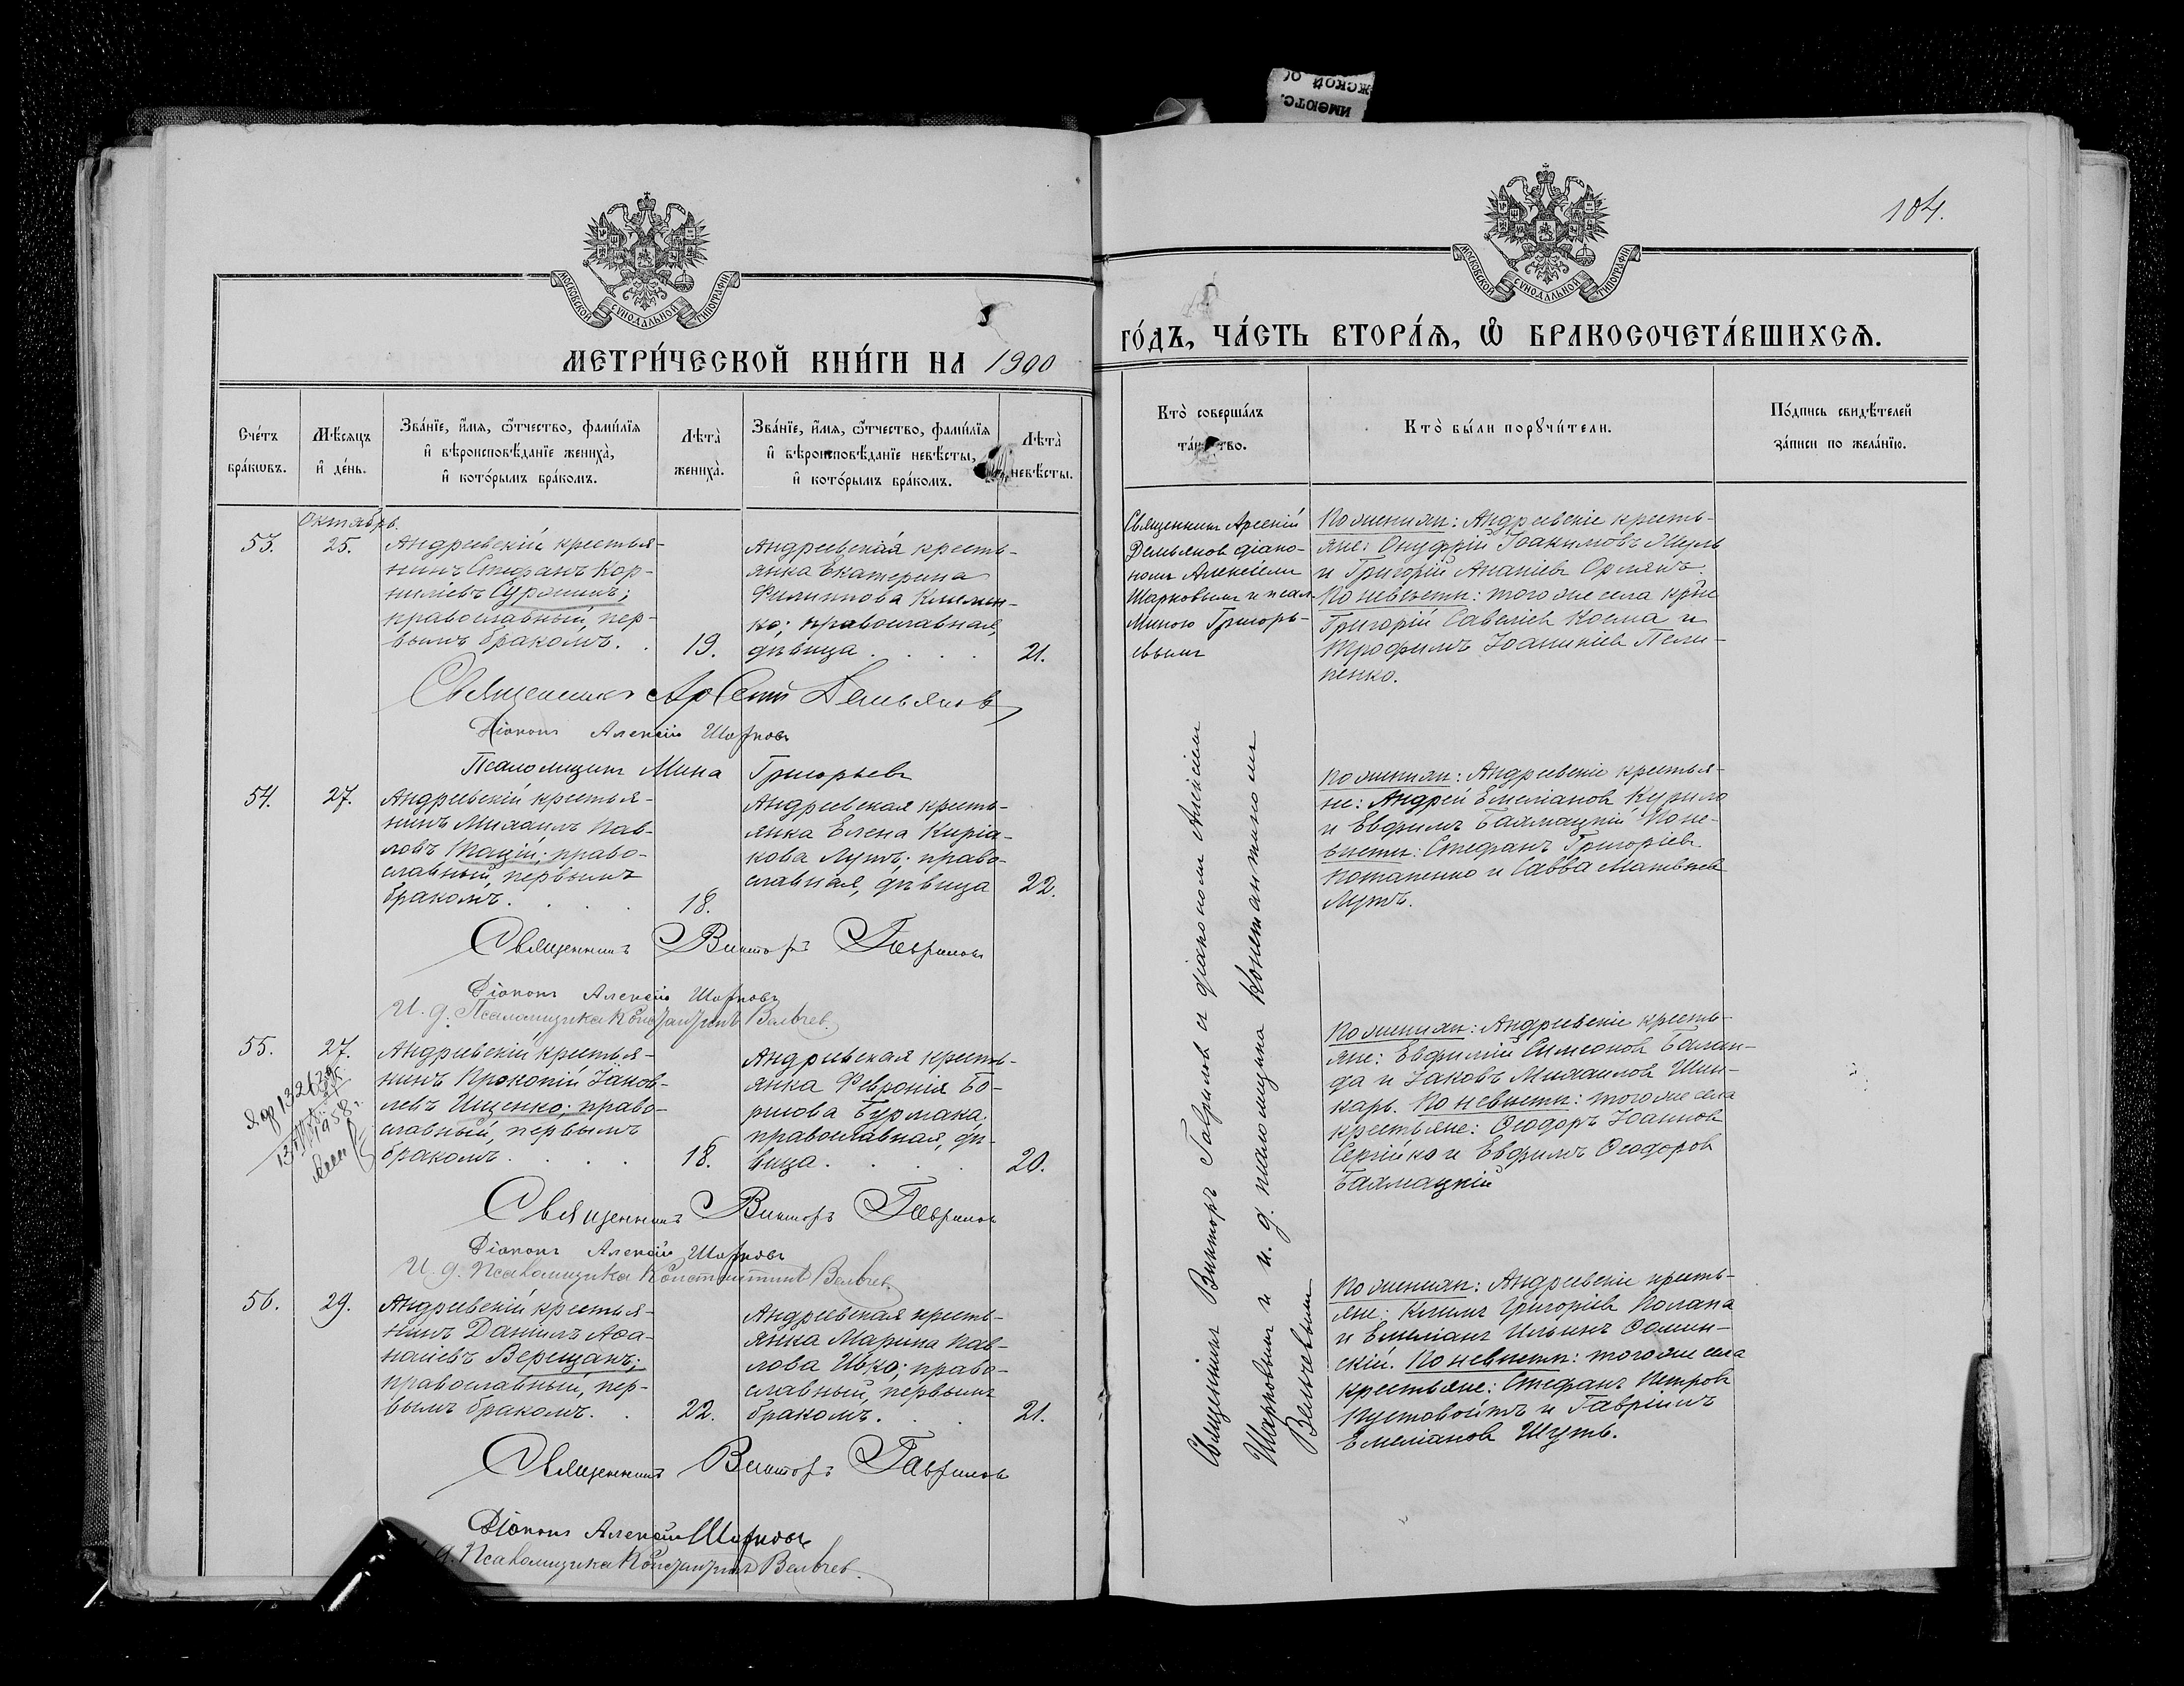 ИМЕЮТС.
ЖСКОЙ ОС
104.
МОСКОВСКОЙ СѴНОДАЛЬНОЙ ТИПОГРАФІИ
МОСКОВСКОЙ СѴНОДАЛЬНОЙ ТИПОГРАФІИ
МЕТРИ́ЧЕСКОЙ КНИ́ГИ НА 1900
ГО́ДЪ, ЧА́СТЬ ВТОРА́Ѧ, Ѽ БРАКОСОЧЕТА́ВШИХСѦ.
Сче́тъ бра́кѡвъ.
Мѣ́сяцъ и҆ де́нь.
Зва́нїе, и҆́мя, ѻ҆́тчество, фами́лїя
и҆ вѣроисповѣ́данїе жениха̀,
и҆ кото́рымъ бра́комъ.
Лѣта̀ жениха̀.
Зва́нїе, и҆́мя, ѻ҆́тчество, фами́лїя
и҆ вѣроисповѣ́данїе невѣ́сты,
и҆ кото́рымъ бра́комъ.
Лѣта̀ невѣ́сты.
Кто̀ соверша́лъ
та́инство.
Кто̀ бы́ли порꙋчи́тели.
По́дпись свидѣ́телей
за́писи по жела́нїю.
Октябрь.
53.
25.
Андреевскій крестья-
нинъ Стефанъ Кор-
ниліевъ
православный, пер-
вымъ бракомъ. .
19.
Андреевская кресть-
янка Екатерина
Филиппова Климен-
ко; православная,
дѣвица . . . .
21.
Священникъ Арсеній
Демьяновъ діако-
номъ Алексіемъ
Шарковымъ и псал.
Миною Григорь-
евымъ
По женихѣ: Андреевскіе кресть-
яне: Онуфрій Іоакимовъ
и Григорій Ананіевъ
По невѣстѣ: того же села кр-не
Григорій Савеліевъ Косма и
Трофимъ Іоанникіевъ Пели-
пенко.
Священникъ Арсеній Демьяновъ
Діаконъ Алексій Шарковъ
Псаломщикъ Мина Григорьевъ
54.
27.
Андреевскій крестья-
нинъ Михаилъ Пав-
ловъ Тацій; право-
славный, первымъ
бракомъ. . . .
18.
Андреевская кресть-
янка Елена Киріа-
кова Лутъ; право-
славная, дѣвица
22.
По женихѣ: Андреевскіе крестья-
не: Андрей Емеліановъ Курило
и Евфимъ Балмацкій По не-
вѣстѣ: Стефанъ Григоріевъ
Потапенко и Савва Матвѣевъ
Лутъ.
Священникъ Викторъ Гавриловъ
Діаконъ Алексій Шарковъ
И. д. Псаломщика Константинъ Вельчев.
55.
27.
1958 г.
Андреевскій крестья-
нинъ Прокопій Іаков-
левъ Ищенко; право-
славный, первымъ
бракомъ . . . .
18.
Андреевская кресть-
янка Февронія Бо-
рисова Бурлака;
православная, дѣ-
вица. . . . .
20.
По женихѣ: Андреевскіе кресть-
яне: Евфимій Симеоновъ Балан-
да и Іаковъ Михаиловъ Шин-
карь. По невѣстѣ: того же села
крестьяне: Ѳеодоръ Іоанновъ
Сергійко и Евфимъ Ѳеодоровъ
Балмацкій
Священникъ Викторъ Гавриловъ
Діаконъ Алексій Шарковъ
И. д. Псаломщика Константинъ Вельчев.
56.
29.
Андреевскій крестья-
нинъ Даніилъ Аѳа-
насіевъ Верещакъ;
православный, пер-
вымъ бракомъ. .
22.
Андреевская кресть-
янка Марина Пав-
лова Ивко; право-
славный, первымъ
бракомъ. . . .
21.
По женихѣ: Андреевскіе кресть-
яне: Климъ Григоріевъ Полапа
и Емеліанъ Ильинъ Осмин-
скій. По невѣстѣ: того же села
крестьяне: Стефанъ Петровъ
Кустовойтъ и Гавріилъ
Емеліановъ Шутъ.
Священникъ Викторъ Гавриловъ
Діаконъ Алексій Шарковъ
д. Псаломщика Константинъ Вельчев.
Священникъ Викторъ Гавриловъ и діакономъ Алексіемъ
Шарковымъ и и. д. псаломщика Константиномъ
Вельчевымъ